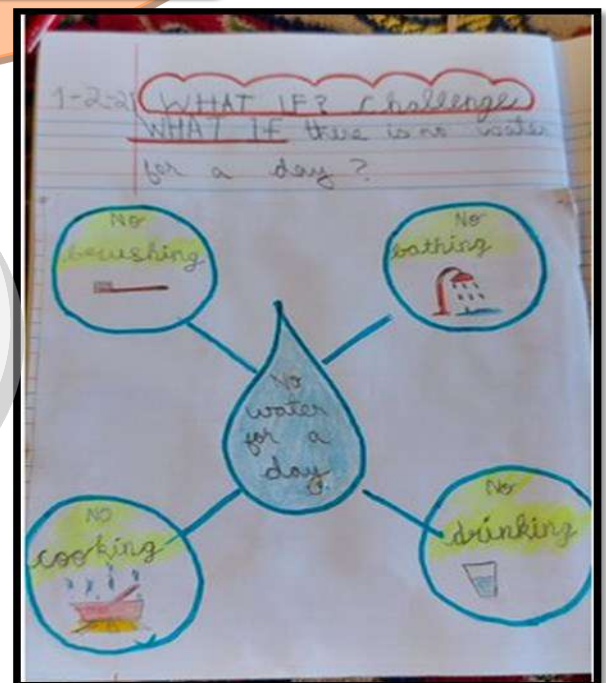 1-2-21 WHAT IF? challenge
WHAT IF there is no water
for a day?
No
brushing
No
bathing
No
water
for a
day
NO
cooking
No
drinking